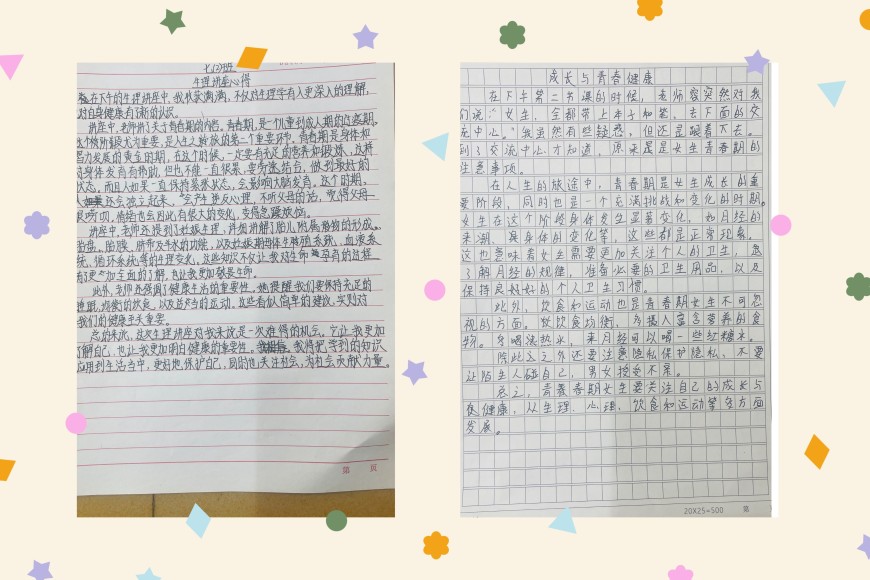 七(3)班
生理讲座心得
在下午的生理讲座中,我收获满满,不仅对生理学有入更深入的理解,
对自身健康有了新的认识。
讲座中,老师讲了关于青春期的内容。青春期,是一个儿童到成人期的过渡期。
这个被阶段尤为重要,是人生之旅成的第一个重要环节,青春期是身体和
智力发展的黄金时期,在这个时候,一定要有充足的营养和锻炼,这样
身体发育有帮助,但也不能一直保暴,要劳逸结合,做到最好的
状态,而且人如果一直保持暴躁状态,会影响大脑发育。这个时期,
人如果还会独立起来,会产生逆反心理,不听父母的话,觉得父母
很唠叨,情绪也会因此有很大的变化,变得急躁放怂。
讲座中,老师还提到了妊娠生理,详细讲解了胎儿附属器物的形成,
胎盘,胎膜,脐带及羊水的功能,以及妊娠期母体生殖系统、血液系
统,循环系统等的生理变化,这些知识不仅让我对生命孕育的过程
有了更加全面的了解,也让我更加敬畏生命。
此外,老师还强调了健康生活的重要性。她提醒我们要保持充足的
睡眠,均衡的饮食,以及适当的运动。这些看似简单的建议,实则对
我们的健康至关重要。
总的来说,这次生理讲座对我来说是一次难得的机会,它让我更加
了解自己,也让我更加明白健康的重要性。我将把学到的知识
应用到生活当中,更好地保护自己,同时也关注社会,为社会贡献力量。
第 页
成长与青春健康
在下午第二节课的时候,老师窗突然对我
们说:"女生,全都带上本子和笔,去下面的交
流中心。"我虽然有些疑惑,但还是跟着下去。
到了交流中心才知道,原来是是女生青春期的
注意事项。
在人生的旅途中,青春期是女生成长的重
要阶段,同时也是一个充满挑战和变化的时期。
女生在这个阶段身体发生显著变化,如月经的
来潮、身体的变化等,这些都是正常现象。
这也意味着女生需要更加关注个人的卫生,包
了解月经的规律,准备必要的卫生用品,以及
保持良好的个人卫生习惯。
此外,饮食和运动也是青春期女生不可忽
视的方面。饮食均衡,多摄入富含营养的食
物。多喝滚热水,来月经可以喝一些红糖水。
除此之外还要注意隐私保护隐私,不要
让陌生人碰自己,男女授受不亲。
总之,青春期女生要关注自己的成长与
健康,从生理、心理、饮食和运动等多方面
发展。
20X25=500